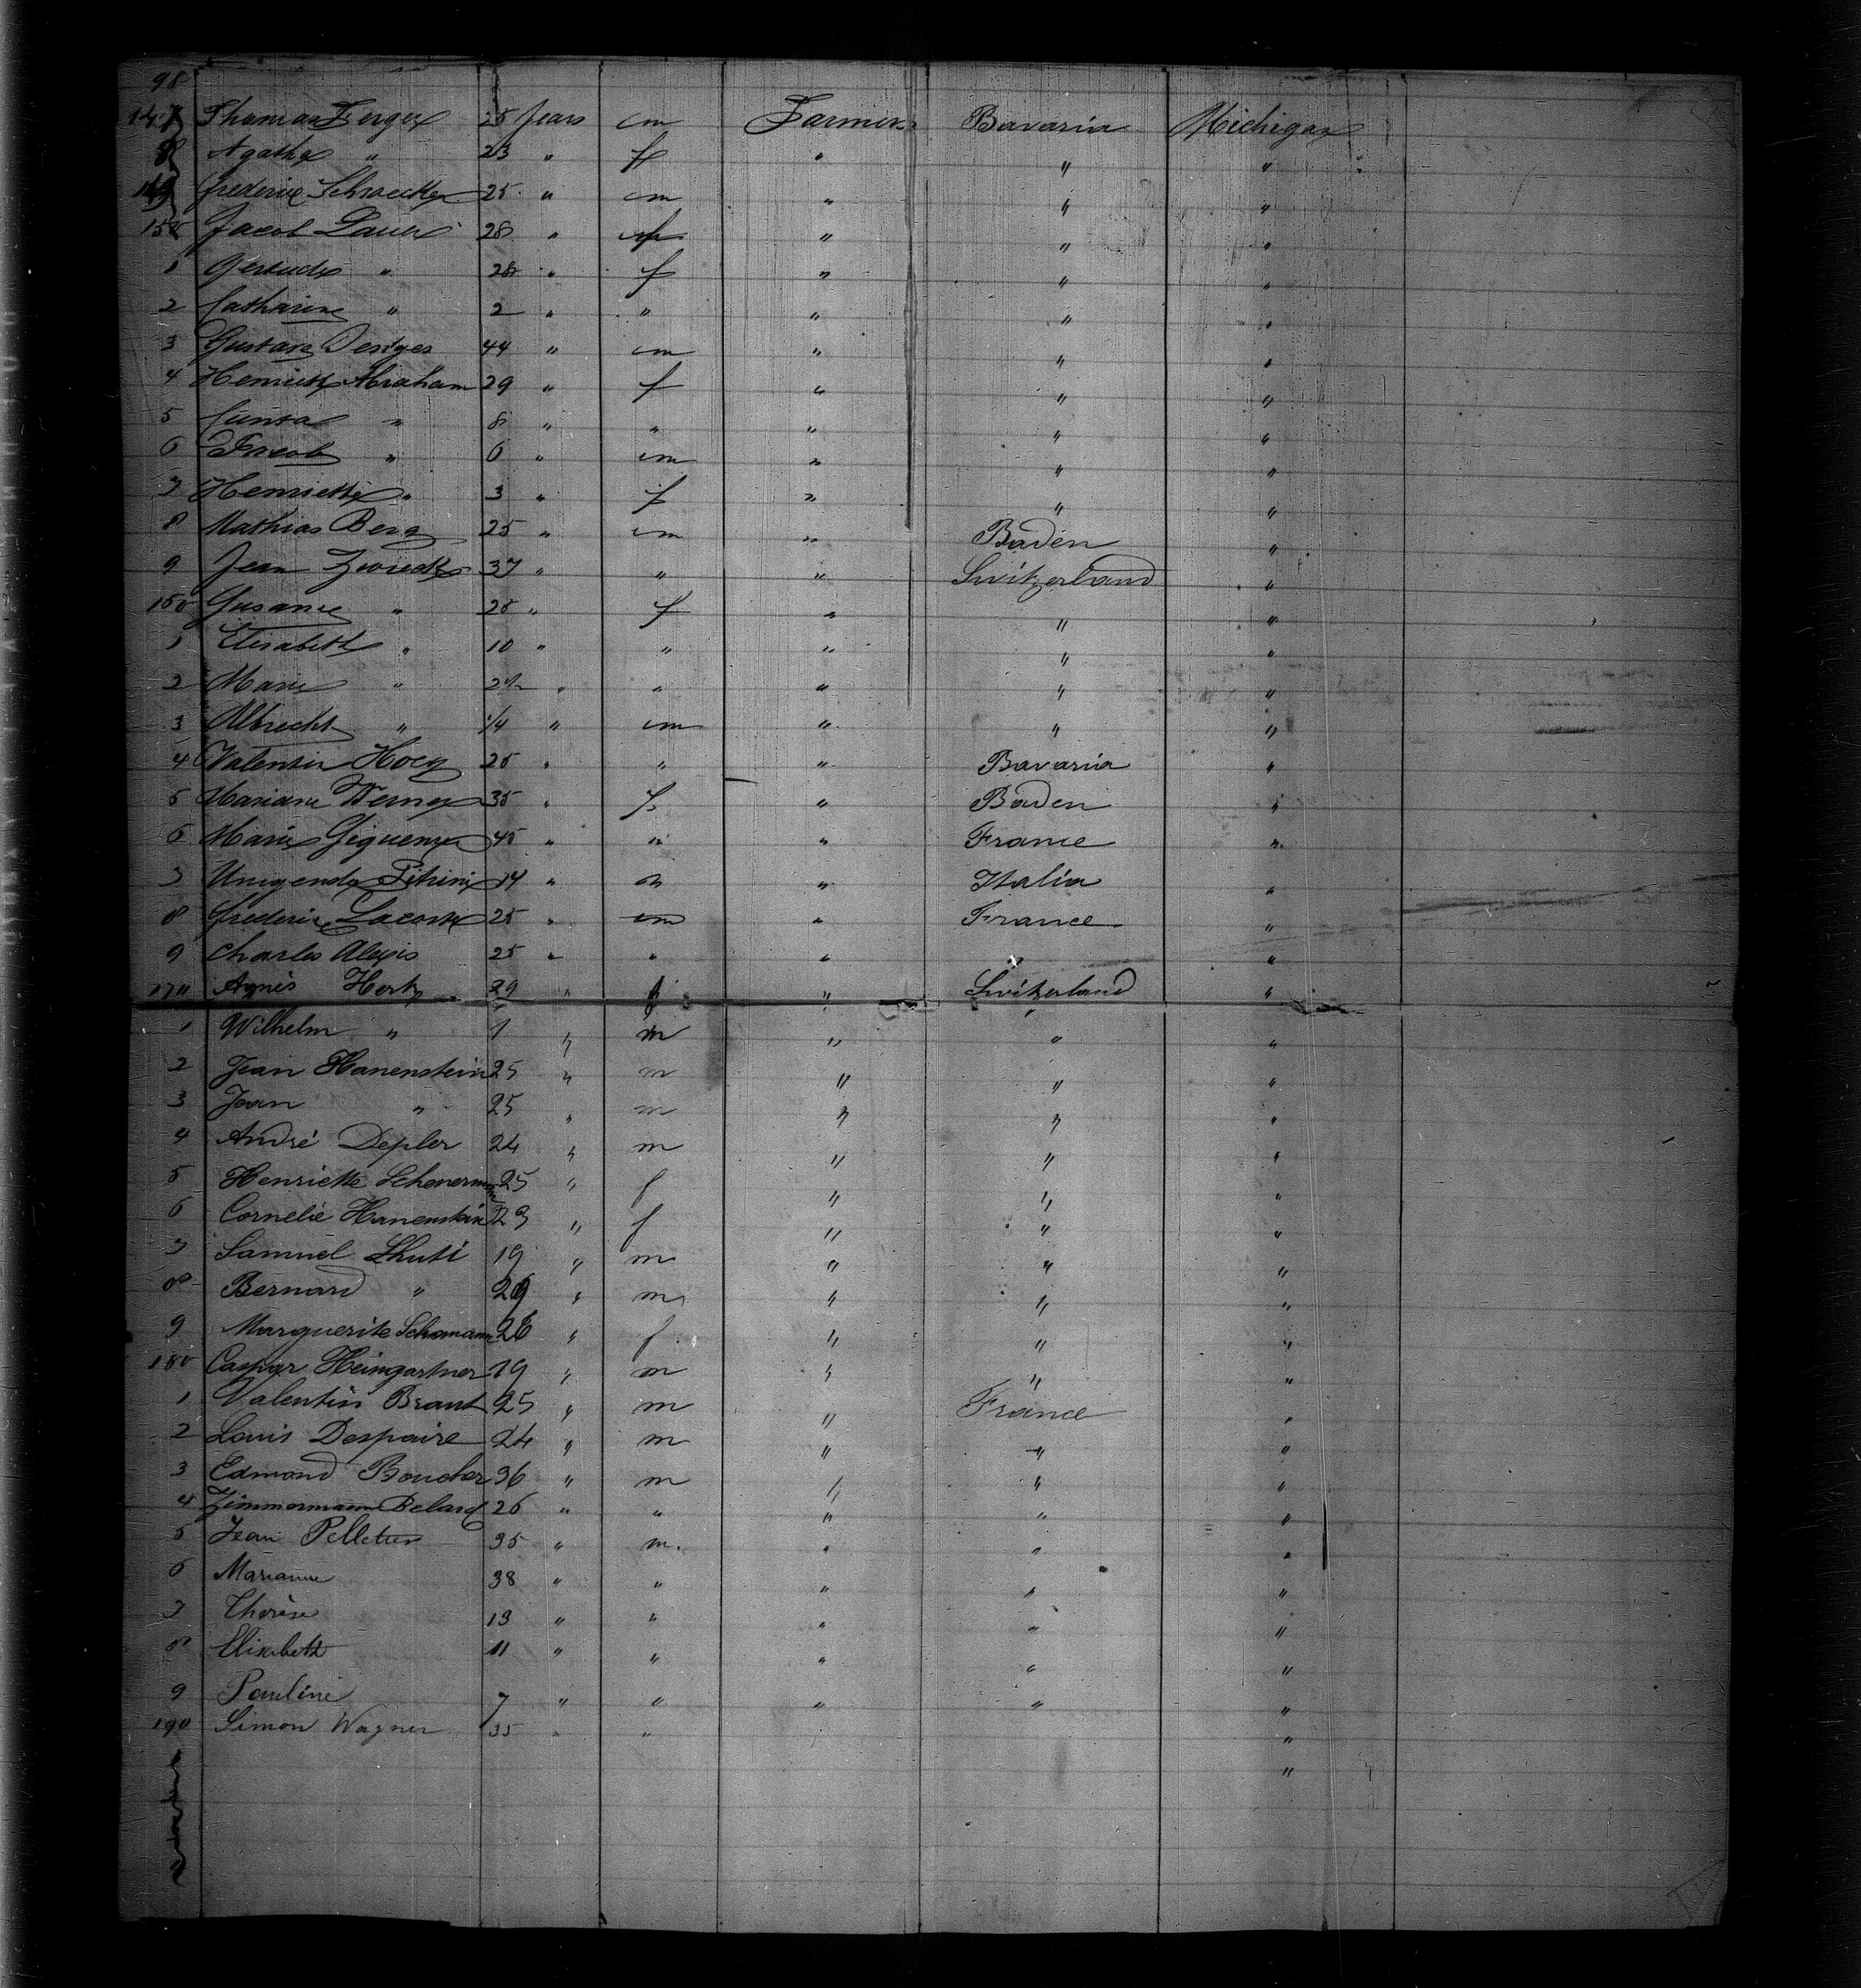 98
147 Thomas Berger 25 years m Farmer Bavaria Michigan
8 Agathe " 23 " f " " "
149 Frederic 25 " m " " "
150 Jacob Lauer 28 " m " " "
1 Gertude " 28 " f " " "
2 Catharine " 2 " " " " "
3 Gustave 44 " m " " "
4 Henriette Abraham 29 " f " " "
5 " 8 " " " " "
6 Jacob " 6 " m " " "
7 Henriette " 3 " f " " "
8 Mathias Berg 25 " m " Baden "
9 Jean 37 " " " Switzerland "
160 Susanne " 25 " f " " "
1 Elisabeth " 10 " " " " "
2 Marie " 2½ " " " " "
3 Albrecht " ¼ " m " " "
4 Valentin Hoeg 25 " " " Bavaria "
5 Mariane 35 " f " Baden "
6 Marie 45 " " " France "
7 14 " " " Italia "
8 Frederic Lacoste 25 " m " France "
9 Charles Alexis 25 " " " " "
170 Agnes Hertz 29 " f " Switzerland "
1 Wilhelm " 1 " m " " "
2 Jean Hanenstein 25 " m " " "
3 Jean " 25 " m " " "
4 André Depler 24 " m " " "
5 Henriette Schenermann 25 " f " " "
6 Cornelie Hanenstein 23 " f " " "
7 Samuel Lhuti 19 " m " " "
8 Bernard " 29 " m " " "
9 Marguerite Schamann 26 " f " " "
180 Caspar Heimgartner 19 " m " " "
1 Valentin Brant 25 " m " France "
2 Louis Despaire 24 " m " " "
3 Edmond Boucher 36 " m " " "
4 Zimmermann 26 " " " " "
5 Jean Pelletier 35 " m. " " "
6 Marianne 38 " " " " "
7 Therèse 13 " " " " "
8 Elisabeth 11 " " " " "
9 Pauline 7 " " " " "
190 Simon Wagner 35 " " "
"